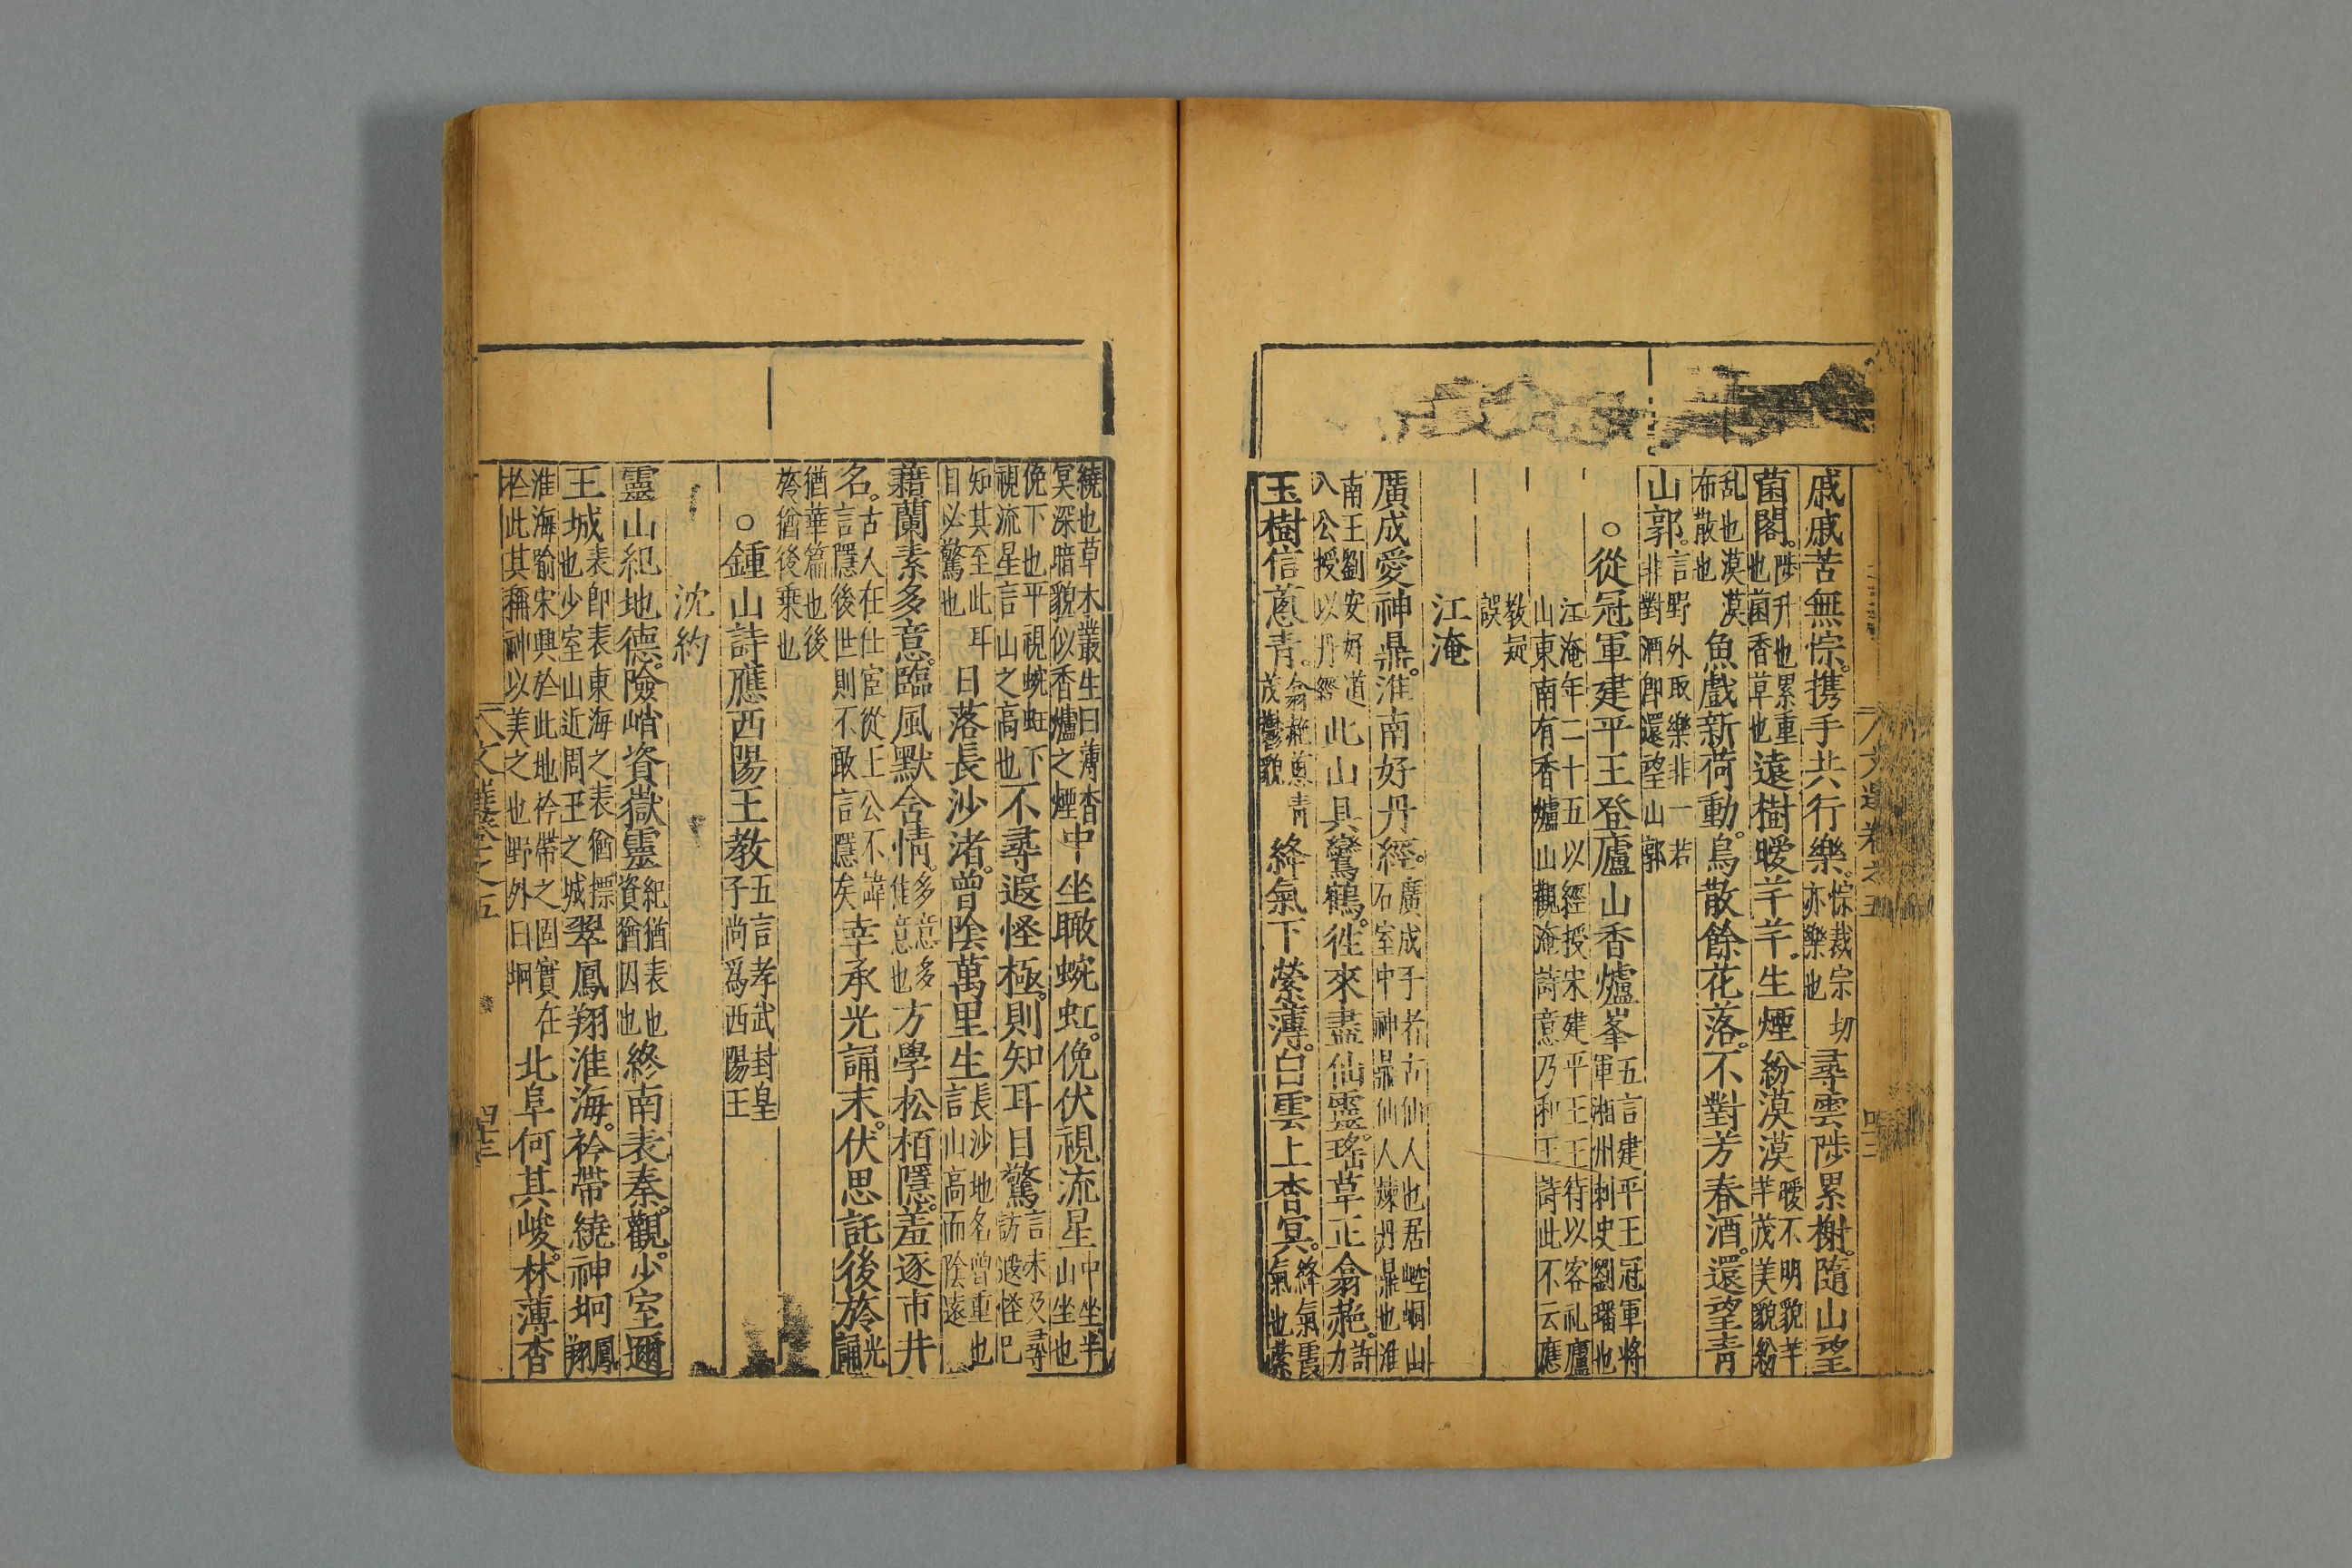 戚戚苦無悰。携手共行樂。悰裁宗切
亦樂也尋雲陟累榭。隨山望
菌閣。陟升也累重
也菌香草也遠樹曖芊芊。生煙紛漠漠曖不明貌芊
芊茂美貌紛
乱也漠漠
布散也魚戲新荷動。鳥散餘花落。不對芳春酒。還望青
山郭。言野外取樂非一若
非對酒即還望山郭
○從冠軍建平王登廬山香爐峯五言建平王冠軍將
軍湘州刺史劉璠也
江淹年二十五以經授宋建平王王待以客礼廬
山東南有香爐山觀淹詩意乃和王詩此不云應
教疑
誤
江淹
廣成愛神鼎。淮南好丹經。廣成子者古仙人也居崆峒山
石室中神鼎仙人煉丹鼎也淮
南王劉安好道
八公授以丹經此山具鸞鶴。徃來盡仙靈。瑤草正翕赩。許
力
玉樹信葱青。翕赩葱青
茂鬱貌絳氣下縈薄。白雲上杳冥。絳氣霞
氣也縈
繞也草木叢生曰薄杳
冥深暗貌似香爐之煙中坐瞰蜿虹。俛伏視流星中坐半
山坐也
俛下也平視蜿虹下
視流星言山之高也不尋遐怪極。則知耳目驚言未及尋
訪遐怪已
知其至此耳
目必驚也日落長沙渚。曾陰萬里生長沙地名曾重也
言山高而陰遠
藉蘭素多意。臨風默含情。多意多
佳意也方學松栢隱。羞逐市井
名。古人在仕宦從上公不諱
言隱後世則不敢言隱矣幸承光誦末。伏思託後旍光
誦
猶華篇也後
旍猶後乘也
○鍾山詩應西陽王教五言孝武封皇
子尚爲西陽王
沈約
靈山紀地德。險峭資嶽靈紀猶表也
資猶因也終南表秦觀。少室邇
王城表即表東海之表猶標
也少室山近周王之城翠鳳翔淮海。衿帶繞神坰鳳
翔
淮海喻宋興於此地衿帶之固實在
於此其稱神以美之也野外曰坰北阜何其峻。林薄杳